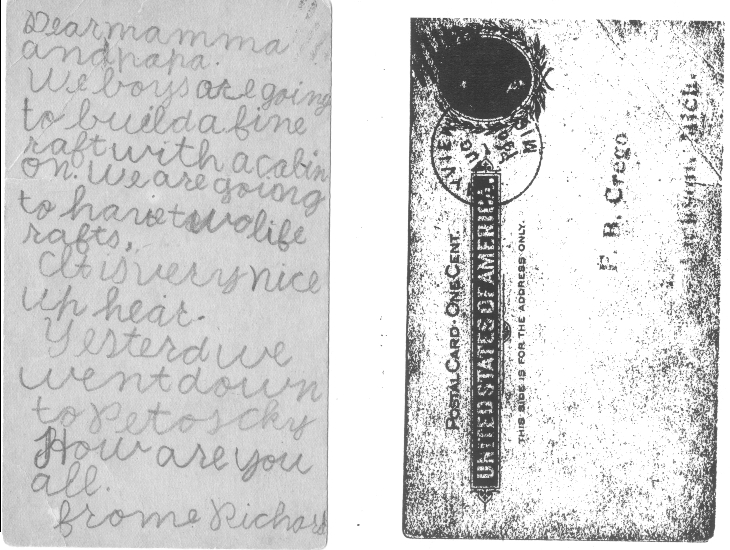 Dear mamma
and papa.
We boys are going
to build a fine
raft with a cabin
on. We are going
to have two life
rafts.
It is very nice
up hear.
Yesterd we
went down
to Petoscky
How are you
all.
frome Richard
POSTAL CARD · ONE CENT.
UNITED STATES OF AMERICA.
THIS SIDE IS FOR THE ADDRESS ONLY.
F. B. Crego
Mich.